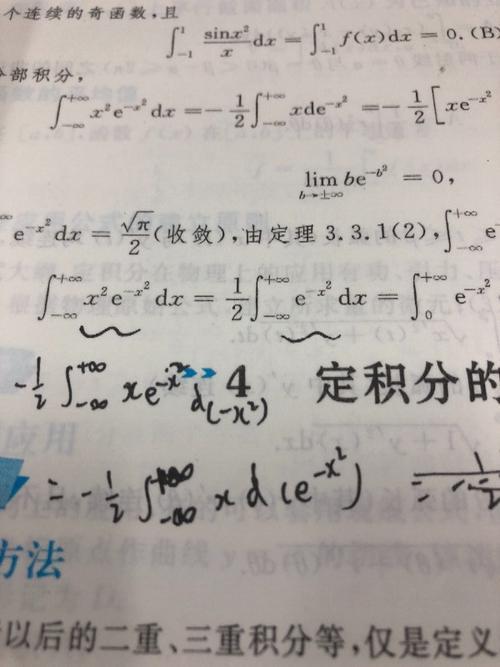 个连续的奇函数,且
∫_{-1}^{1} sinx²/x dx = ∫_{-1}^{1} f(x)dx = 0. (B)
部积分,
∫_{-∞}^{+∞} x²e^{-x²} dx = -1/2 ∫_{-∞}^{+∞} xde^{-x²} = -1/2 [xe^{-x²}
lim_{b→±∞} be^{-b²} = 0,
e^{-x²}dx = √π/2 (收敛),由定理 3.3.1(2), ∫_{-∞}^{+∞} e
∫_{-∞}^{+∞} x²e^{-x²} dx = 1/2 ∫_{-∞}^{+∞} e^{-x²} dx = ∫_{0}^{+∞} e^{-x²}
-1/2 ∫_{-∞}^{+∞} x e^{-x²} d(-x²)
4 定积分的
= -1/2 ∫_{-∞}^{+∞} x d(e^{-x²}) = -1/2
方法
以后的二重、三重积分等,仅是定义